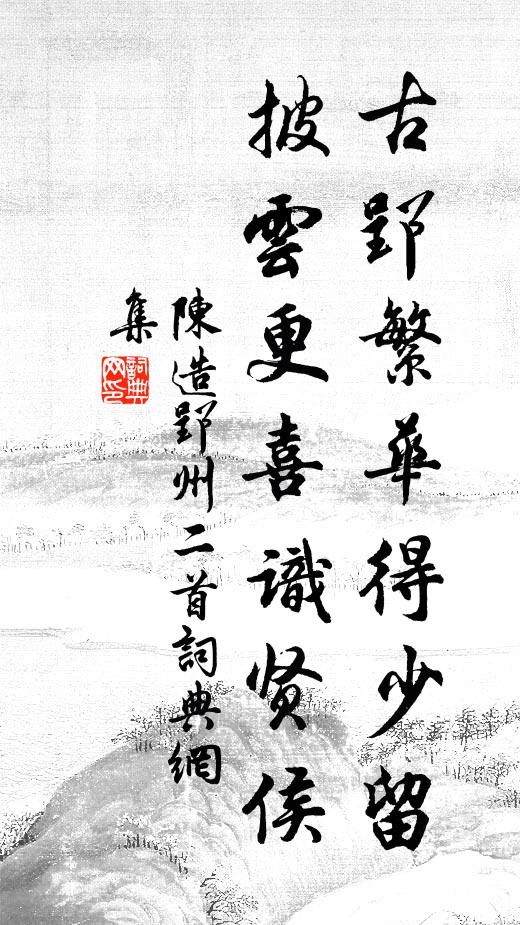 古郢繁華得少留
披雲更喜識贤侯
陳造郢州二首詞典網
集
詞典
网印